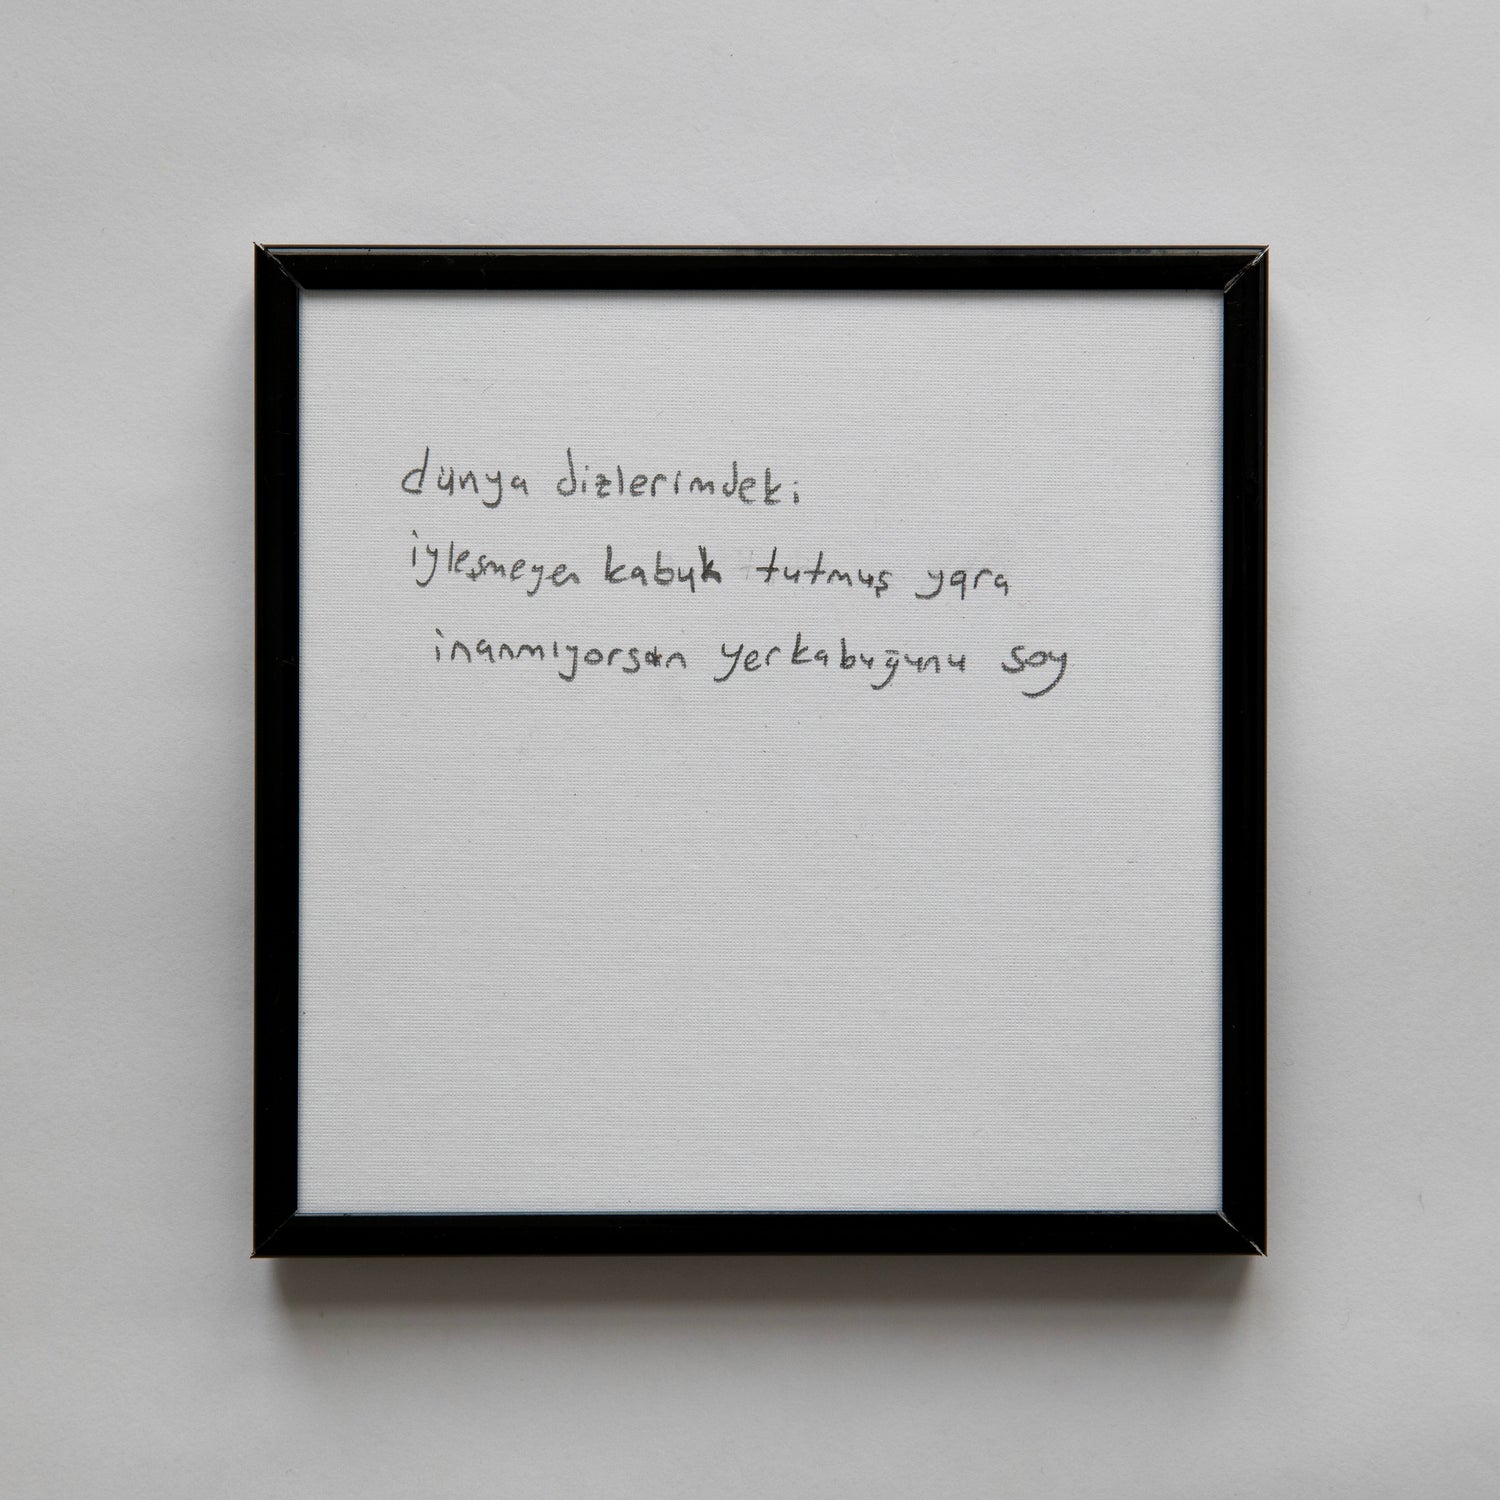 dünya dizlerimdeki
iyleşmeyen kabuk tutmuş yara
inanmıyorsan yerkabuğunu soy